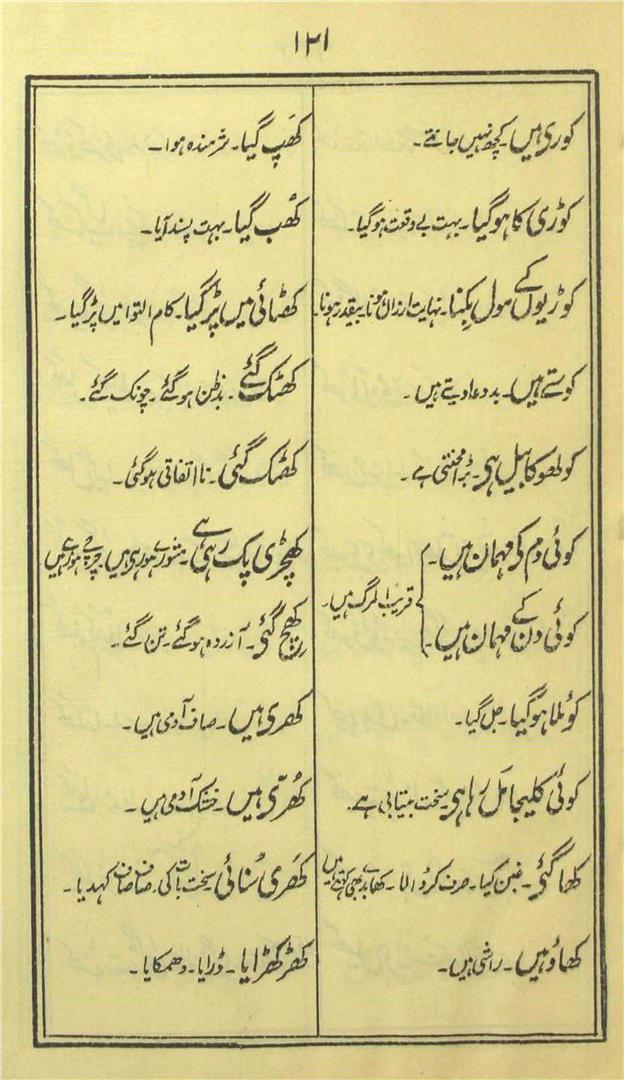 ۱۲۱
کوری ہیں۔ کچھ نہیں جانتے۔
کوڑی کا ہوگیا۔ بہت بے وقعت ہوگیا۔
کوڑیوں کے مول بکنا۔ نہایت ارزاں ہونا۔ بیقدر ہونا۔
کوستے ہیں۔ بددعا دیتے ہیں۔
کولھو کا بیل ہی۔ بڑا محنتی ہے۔
کوئی دم کی مہمان ہیں۔
کوئی دن کے مہمان ہیں۔ } قریب المرگ ہیں۔
کوئلا ہوگیا۔ جل گیا۔
کوئی کلیجا مَل رہا ہی۔ سخت بیتابی ہے۔
کھا گئی۔ غبن کیا۔ صرف کر ڈالا۔ کھا بدھی کہتے ہیں
کھاؤ ہیں۔ راشی ہیں۔
کھَپ گیا۔ شرمندہ ہوا۔
کھُب گیا۔ بہت پسند آیا۔
کھٹائی میں پڑ گیا۔ کام التوا میں پڑ گیا۔
کھٹک گئے۔ بدظن ہوگئے۔ چونک گئے۔
کھٹک گئی۔ نااتفاقی ہوگئی۔
کھچڑی پک رہی ہے۔ مشورے ہو رہی ہیں۔ چرچے ہو رہے ہیں
کھِچ گئی۔ آزردہ ہوگئے۔ تن گئے۔
کھری ہیں۔ صاف آدمی ہیں۔
کھُرّی ہیں۔ خشک آدمی ہیں۔
کھَری سُنائی سخت بات کی۔ صاف صاف کہدیا۔
کھڑکھڑایا۔ ڈرایا۔ دھمکایا۔